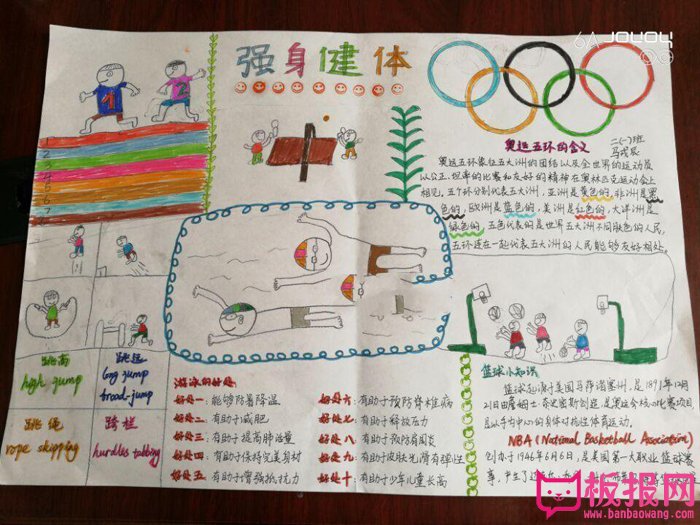 强身健体
6A JOYOU
1
2
1
2
3
4
5
6
7
奥运五环的含义
二(一)班
奥运五环象征五大洲的团结以及全世界的运动员
以公正、坦率的比赛和友好的精神在奥林匹克运动会上
相见。五个环分别代表五大洲，亚洲是黄色的，非洲是黑
色的，欧洲是蓝色的，美洲是红色的，大洋洲是
绿色的，五色代表的是世界五大洲不同肤色的人民，
五环连在一起代表五大洲的人民能够友好相处。
跳高
high-jump
跳远
long-jump
broad-jump
跳绳
rope skipping
跨栏
hurdles
游泳的好处:
好处一: 能够防暑降温
好处二: 有助于减肥
好处三: 有助于提高肺活量
好处四: 有助于保持完美身材
好处五: 有助于增强抵抗力
好处六: 有助于预防脊椎病
好处七: 有助于释放压力
好处八: 有助于预防肩周炎
好处九: 有助于皮肤光滑有弹性
好处十: 有助于少年儿童长高
篮球小知识
篮球起源于美国马萨诸塞州，是1891年12月
21日由詹姆士·奈史密斯创造，是奥运会核心比赛项目
是以手为中心的身体对抗性体育运动。
NBA (National Basketball Association)
创办于1946年6月6日，是美国第一大职业篮球赛
事，产生了
板报网
www.banbaowang.com